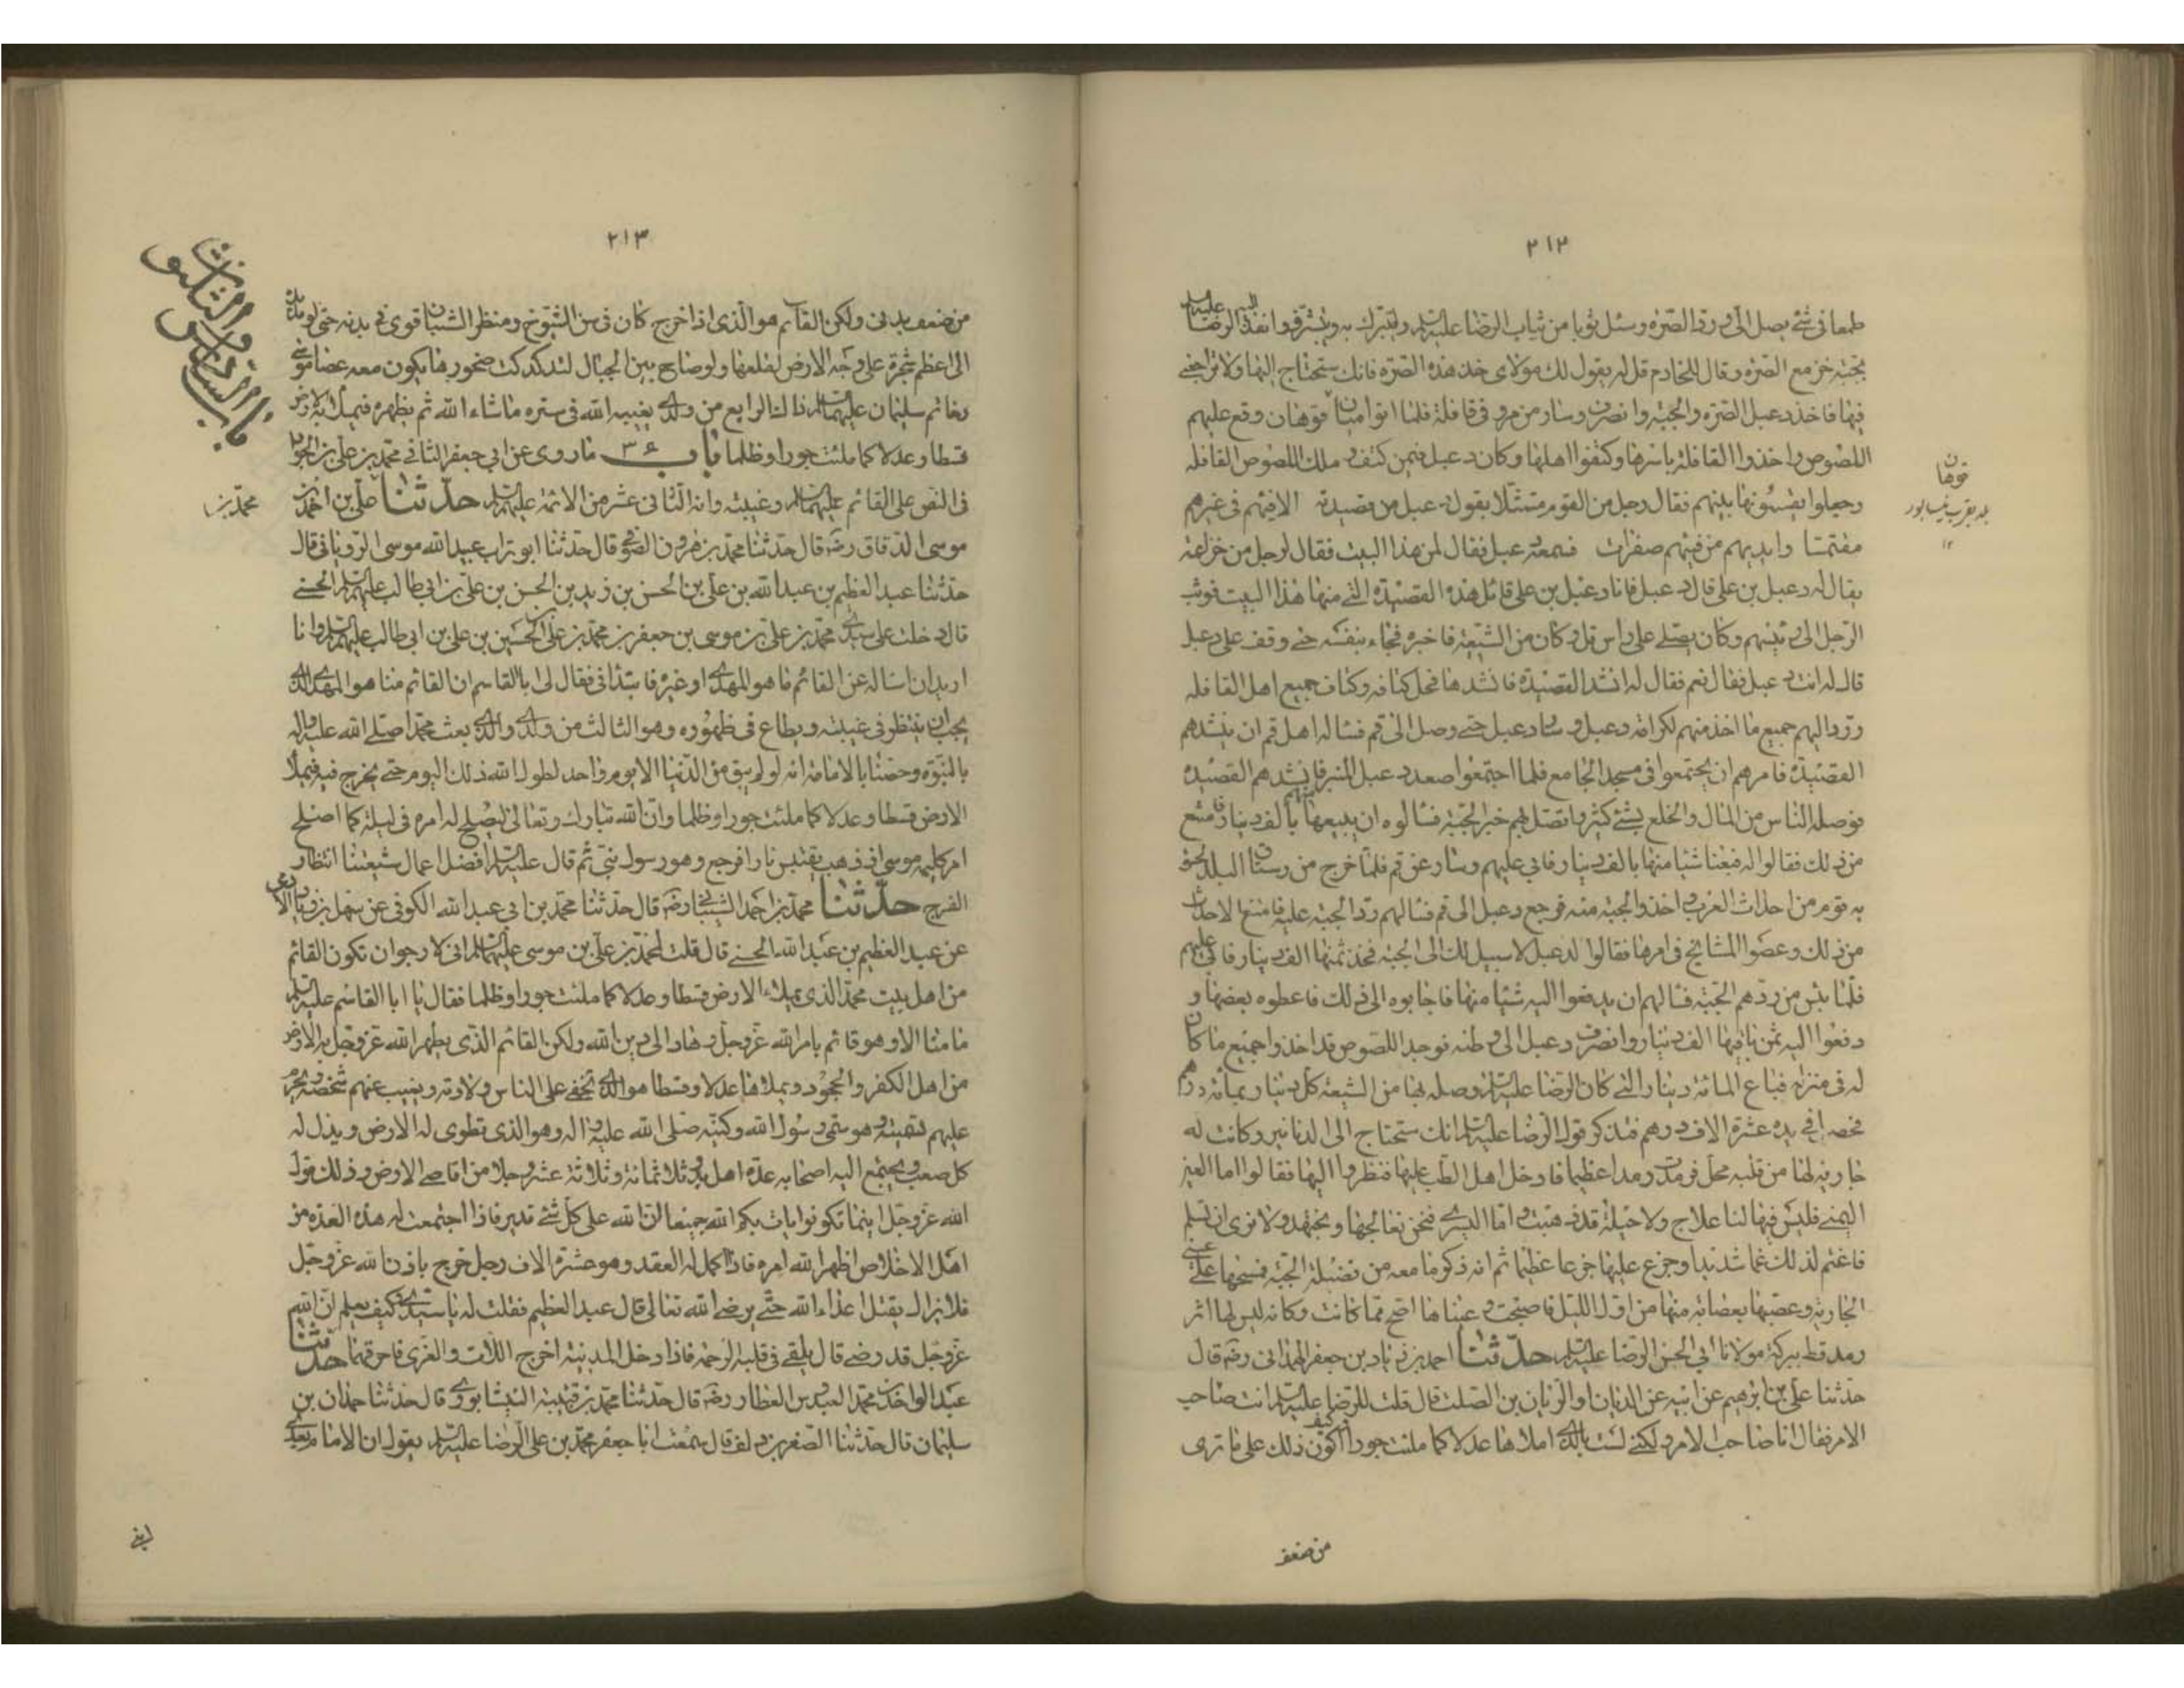 ٢١٢
طمعا فی شئ یصل الی ورد الصره وسئل ثوبا من ثیاب الرضا علیه السلم ولیتبرك به ویتشرف فانفذ الیه الرضا علیه السلم
بجبة خز مع الصره وقال للخادم قل له یقول لك مولای خذ هذه الصره فانك ستحتاج الیها ولا تراجعنی
فیها فاخذ دعبل الصره والجبه وانصرف وسار من مرو فی قافلة فلما اتوا میان قوهان وقع علیهم
اللصوص واخذوا القافلة باسرها وكتفوا اهلها وكان دعبل فیمن كتف وملك اللصوص القافله
وجعلوا یقسمونها بینهم فقال رجل من القوم متمثلا یقول دعبل من قصیدته الا فیئهم فی غیرهم
مقتمسا وایدیهم من فیئهم صفرات فسمعه دعبل فقال لمن هذا البیت فقال لرجل من خزاعه
یقال له دعبل بن علی قال دعبل فانا دعبل بن علی قائل هذه القصیده التی منها هذا البیت فوثب
الرجل الی رئیسهم وكان یصلی علی راس تل وكان من الشیعه فاخبره فجاء بنفسه حتی وقف علی دعبل
قال له انت دعبل فقال نعم فقال له انشد القصیده فانشدها فحل كتافه وكتاف جمیع اهل القافله
ورد الیهم جمیع ما اخذ منهم لكرامه دعبل وسار دعبل حتی وصل الی قم فسأله اهل قم ان ینشدهم
القصیده فامرهم ان یجتمعوا فی مسجد الجامع فلما اجتمعوا صعد دعبل المنبر فانشدهم القصیده
فوصله الناس من المال والخلع بشئ كثیر واتصل بهم خبر الجبة فسألوه ان یبیعها منهم بألف دینار فامتنع
من ذلك فقالوا له فبعنا شیا منها بالف دینار فابی علیهم وسار عن قم فلما خرج من رستاق البلد لحق
به قوم من احداث العرب واخذوا الجبه منه فرجع دعبل الی قم فسألهم رد الجبه علیه فامتنع الاحداث
من ذلك وعصوا المشایخ فی امرها فقالوا لدعبل لا سبیل لك الی الجبه فخذ ثمنها الف دینار فابی علیهم
فلما یئس من ردهم الجبة فسألهم ان یدفعوا الیه شیا منها فاجابوه الی ذلك فاعطوه بعضها و
دفعوا الیه ثمن باقیها الف دینار وانصرف دعبل الی وطنه فوجد اللصوص قد اخذوا جمیع ما كان
له فی منزله فباع المائة دینار التی كان الرضا علیه السلم وصله بها من الشیعة كل دینار بمائه درهم
فحصل فی یده عشرة الاف درهم فتذكر قول الرضا علیه السلم انك ستحتاج الی الدنانیر وكانت له
جاریه لها من قلبه محل فرمدت رمدا عظیما فادخل اهل الطب علیها فنظروا الیها فقالوا اما العین
الیمنی فلیس فیها لنا علاج ولا حیلة قد ذهبت واما الیسری فنحن نعالجها ونجتهد ولا نری ان تسلم
فاغتم لذلك غما شدیدا وجزع علیها جزعا عظیما ثم انه ذكر ما معه من فضیلة الجبة فمسحها علی عینی
الجاریه وعصبها بعصابه منها من اول اللیل فاصبحت وعیناها اصح مما كانت وكانه لیس لها اثر
رمد قط ببركة مولانا ابی الحسن الرضا علیه السلم حدثنا احمد بن زیاد بن جعفر الهمدانی رضه قال
حدثنا علی بن ابرهیم عن ابیه عن الریان بن الصلت قال قلت للرضا علیه السلم انت صاحب
الامر فقال انا صاحب الامر ولكنی لست بالذی املاها عدلا كما ملئت جورا وكیف اكون ذلك علی ما تری
من ضعف
قوهان
بلد بقرب نیسابور
١٢
٢١٣
من ضعف بدنی ولكن القائم هو الذی اذا خرج كان فی سن الشیوخ ومنظر الشبان قوی فی بدنه حتی لو مد یده
الی اعظم شجرة علی وجه الارض لقلعها ولو صاح بین الجبال لتدكدكت صخورها یكون معه عصا موسی
وخاتم سلیمان علیهما السلم ذاك الرابع من ولدی یغیبه الله فی ستره ما شاء الله ثم یظهره فیملأ به الارض
قسطا وعدلا كما ملئت جورا وظلما باب ٣٦ ما روی عن ابی جعفر الثانی محمد بن علی الجواد
فی النص علی القائم علیهما السلم وغیبته وانه الثانی عشر من الائمة علیهم السلم حدثنا علی بن احمد بن
موسی الدقاق رضه قال حدثنا محمد بن هرون الصوفی قال حدثنا ابو تراب عبید الله موسی الرویانی قال
حدثنا عبد العظیم بن عبد الله بن علی بن الحسن بن زید بن الحسن بن علی بن ابی طالب علیهم السلم الحسنی
قال دخلت علی سیدی محمد بن علی بن موسی بن جعفر بن محمد بن علی بن الحسین بن علی بن ابی طالب علیهم السلم وانا
ارید ان اساله عن القائم ما هو المهدی او غیره فابتدأنی فقال لی یا ابا القاسم ان القائم منا هو المهدی الذی
یجب ان ینتظر فی غیبته ویطاع فی ظهوره وهو الثالث من ولدی والذی بعث محمدا صلی الله علیه واله
بالنبوة وخصنا بالامامة انه لو لم یبق من الدنیا الا یوم واحد لطول الله ذلك الیوم حتی یخرج فیه فیملأ
الارض قسطا وعدلا كما ملئت جورا وظلما وان الله تبارك وتعالی لیصلح له امره فی لیلة كما اصلح
امر كلیمه موسی اذ ذهب یقتبس نارا فرجع وهو رسول نبی ثم قال علیه السلم افضل اعمال شیعتنا انتظار
الفرج حدثنا محمد بن احمد الشیبانی رضه قال حدثنا محمد بن ابی عبد الله الكوفی عن سهل بن زیاد الادمی
عن عبد العظیم بن عبد الله الحسنی قال قلت لمحمد بن علی بن موسی علیهما السلم انی لارجو ان تكون القائم
من اهل بیت محمد الذی یملاء الارض قسطا وعدلا كما ملئت جورا وظلما فقال یا ابا القاسم علیه السلم
ما منا الا وهو قائم بامر الله عز وجل وهاد الی دین الله ولكن القائم الذی یطهر الله عز وجل به الارض
من اهل الكفر والجحود ویملاها عدلا وقسطا هو الذی تخفی علی الناس ولادته ویغیب عنهم شخصه ویحرم
علیهم تسمیته وهو سمی رسول الله وكنیه صلی الله علیه واله وهو الذی تطوی له الارض ویذل له
كل صعب ویجتمع الیه اصحابه عدة اهل بدر ثلاثمائة وثلاثة عشر رجلا من اقاصی الارض وذلك قول
الله عز وجل اینما تكونوا یات بكم الله جمیعا ان الله علی كل شئ قدیر فاذا اجتمعت له هذه العدة من
اهل الاخلاص اظهر الله امره فاذا كمل له العقد وهو عشرة الاف رجل خرج باذن الله عز وجل
فلا یزال یقتل اعداء الله حتی یرضی الله تعالی قال عبد العظیم فقلت له یا سیدی كیف یعلم ان الله
عز وجل قد رضی قال یلقی فی قلبه الرحمة فاذا دخل المدینة اخرج اللات والعزی فاحرقهما حدثنا
عبد الواحد بن محمد العبدوس العطار رضه قال حدثنا محمد بن قتیبة النیشابوری قال حدثنا حمدان بن
سلیمان قال حدثنا الصقر بن دلف قال سمعت ابا جعفر محمد بن علی الرضا علیه السلم یقول ان الامام بعدی
باب السادس والثلثون
محمد بن
ابنی